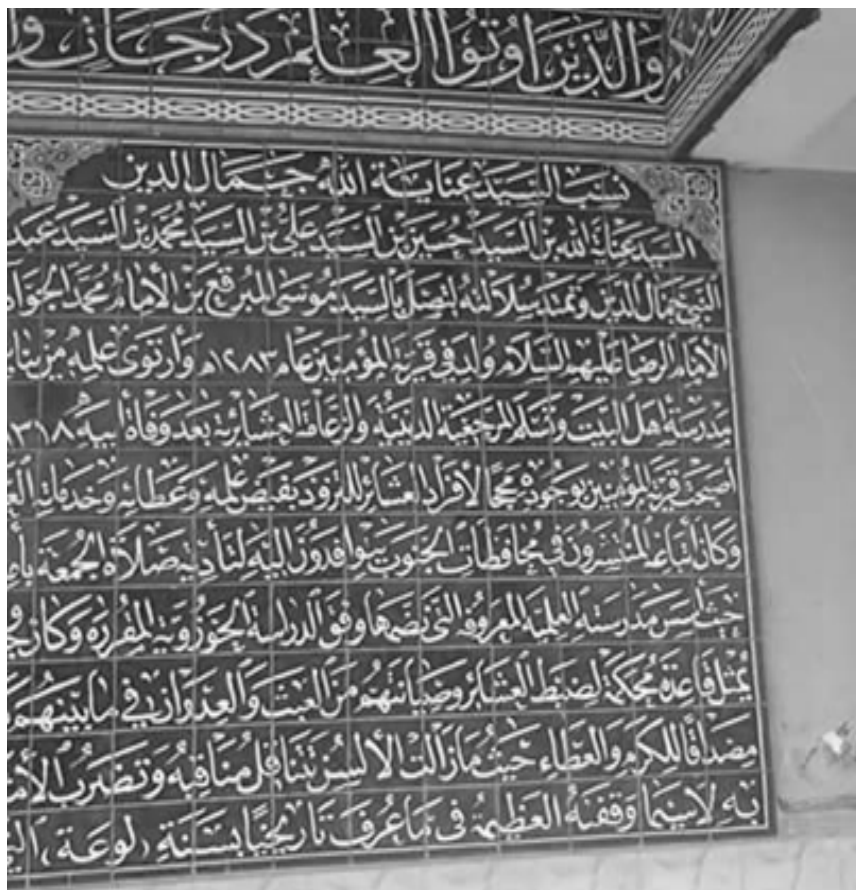 والذين اوتوا العلم درجات و
نسب السيد عناية الله جمال الدين
السيد عناية الله بن السيد حسين بن السيد علي بن السيد محمد بن السيد عبد
النبي جمال الدين وتمتد سلالته لتصل بالسيد موسى المبرقع بن الأمام محمد الجواد
الأمام الرضا عليهم السلام ولد في قرية المؤمنين عام ١٢٨٣هـ وأرتوى علمه من
مدرسة اهل البيت وتسلم المرجعية الدينية والزعامة العشائرية بعد وفاة أبيه ١٣١٨
أصبحت قرية المؤمنين بوجوده محجا لأفراد العشائر للتزود بفيض علمه وعطائه وخدماته
وكان أتباعه المنتشرون في محافظات الجنوب يتوافدون اليه لتأدية صلاة الجمعة
حيث أسس مدرسته العلمية المعروفة التي نضمها وفق الدراسة الحوزوية المقررة وكان
يمثل قاعدة محكمة لضبط العشائر وصيانتهم من العبث والعدوان في ما بينهم
مصداقا للكرم والعطاء حيث مازالت الألسن تتناقل مناقبه وتضرب
به لاسيما وقفته العظيمة في ما عرف تاريخيا بسنة (لوعة)